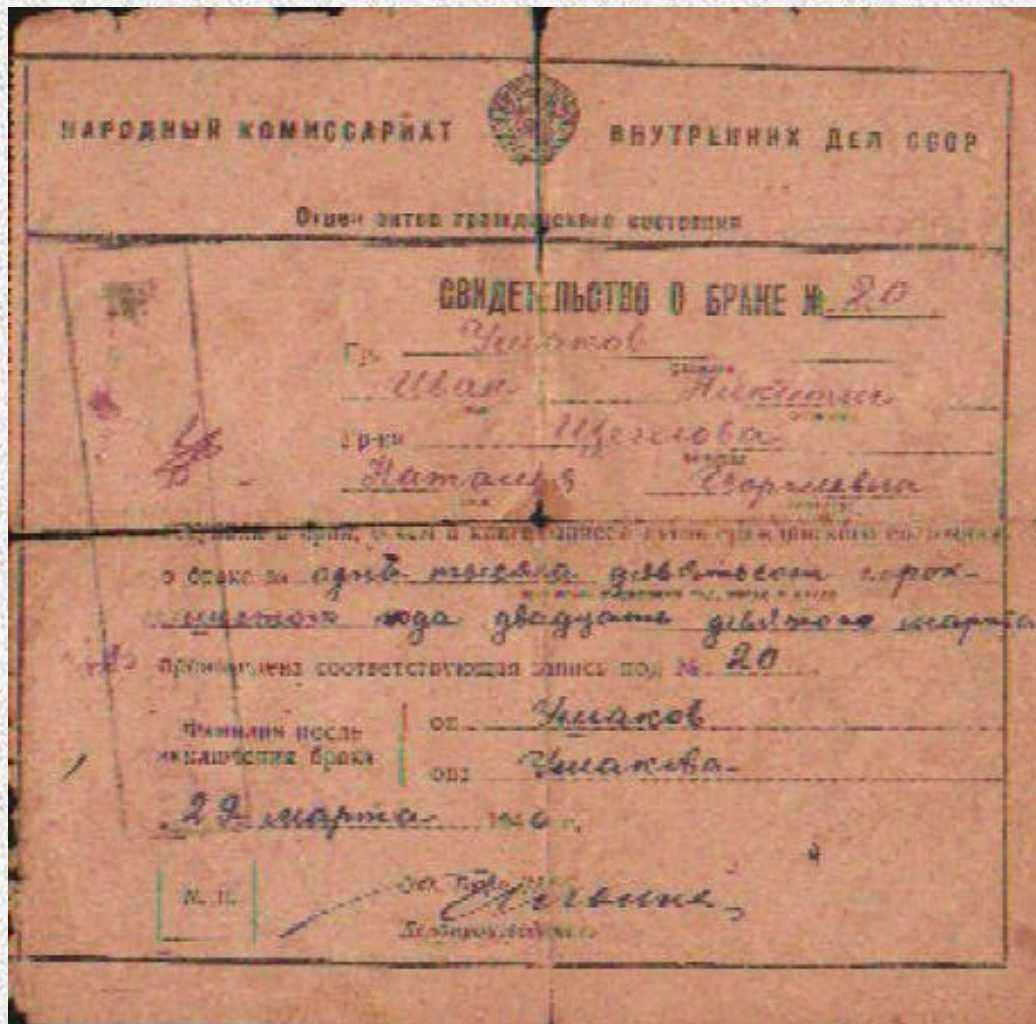 НАРОДНЫЙ КОМИССАРИАТ ВНУТРЕННИХ ДЕЛ СССР
Отдел актов гражданского состояния
СВИДЕТЕЛЬСТВО О БРАКЕ № 20
Гр. Ушаков
фамилия
Иван Никитич
имя отчество
Гр-ка Щеглова
фамилия
Наталья Георгиевна
имя отчество
вступили в брак, о чем в книге записей актов гражданского состояния
о браке за одна тысяча девятьсот сорок
шестого года двадцать девятого марта
произведена соответствующая запись под № 20
Фамилия после
заключения брака
он Ушаков
она Ушакова
29 марта 1946 г.
М. П.
Делопроизводитель